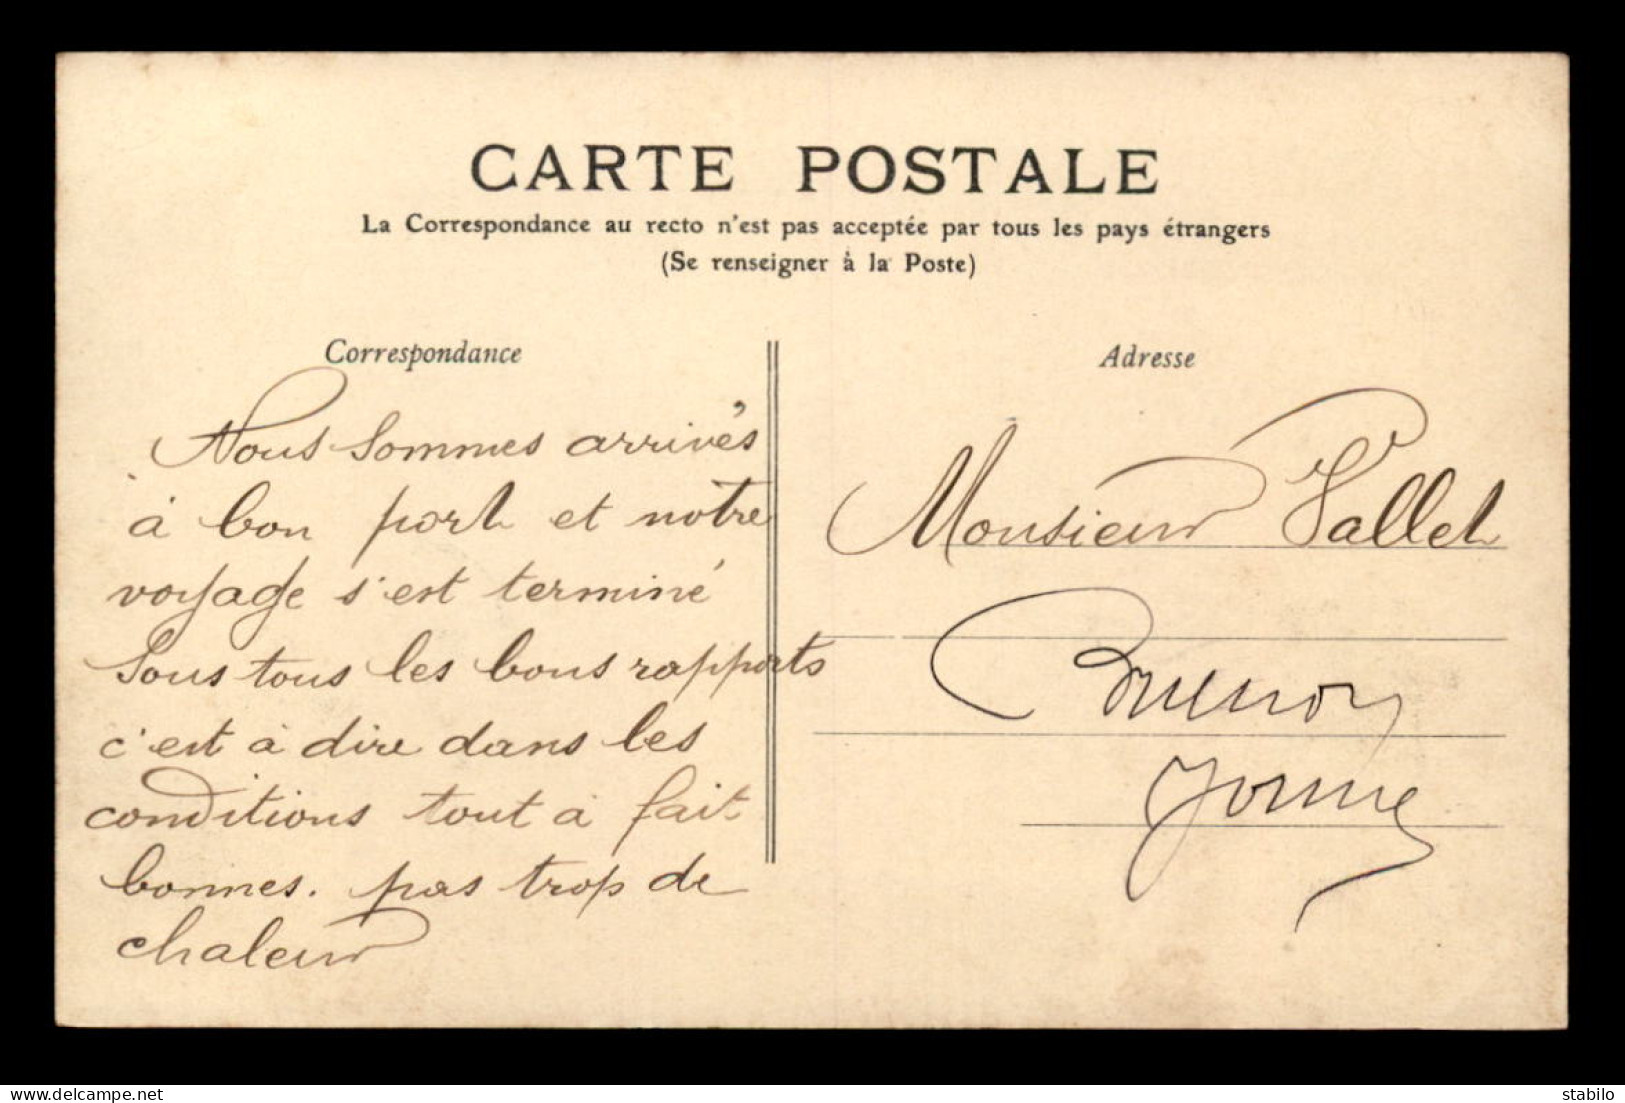 CARTE POSTALE
La Correspondance au recto n'est pas acceptée par tous les pays étrangers
(Se renseigner à la Poste)
Correspondance
Nous sommes arrivés
à bon port et notre
voyage s'est terminé
sous tous les bons rapports
c'est à dire dans les
conditions tout à fait
bonnes. pas trop de
chaleur
Adresse
Monsieur Vallet
Yonne
delcampe.net
stabilo